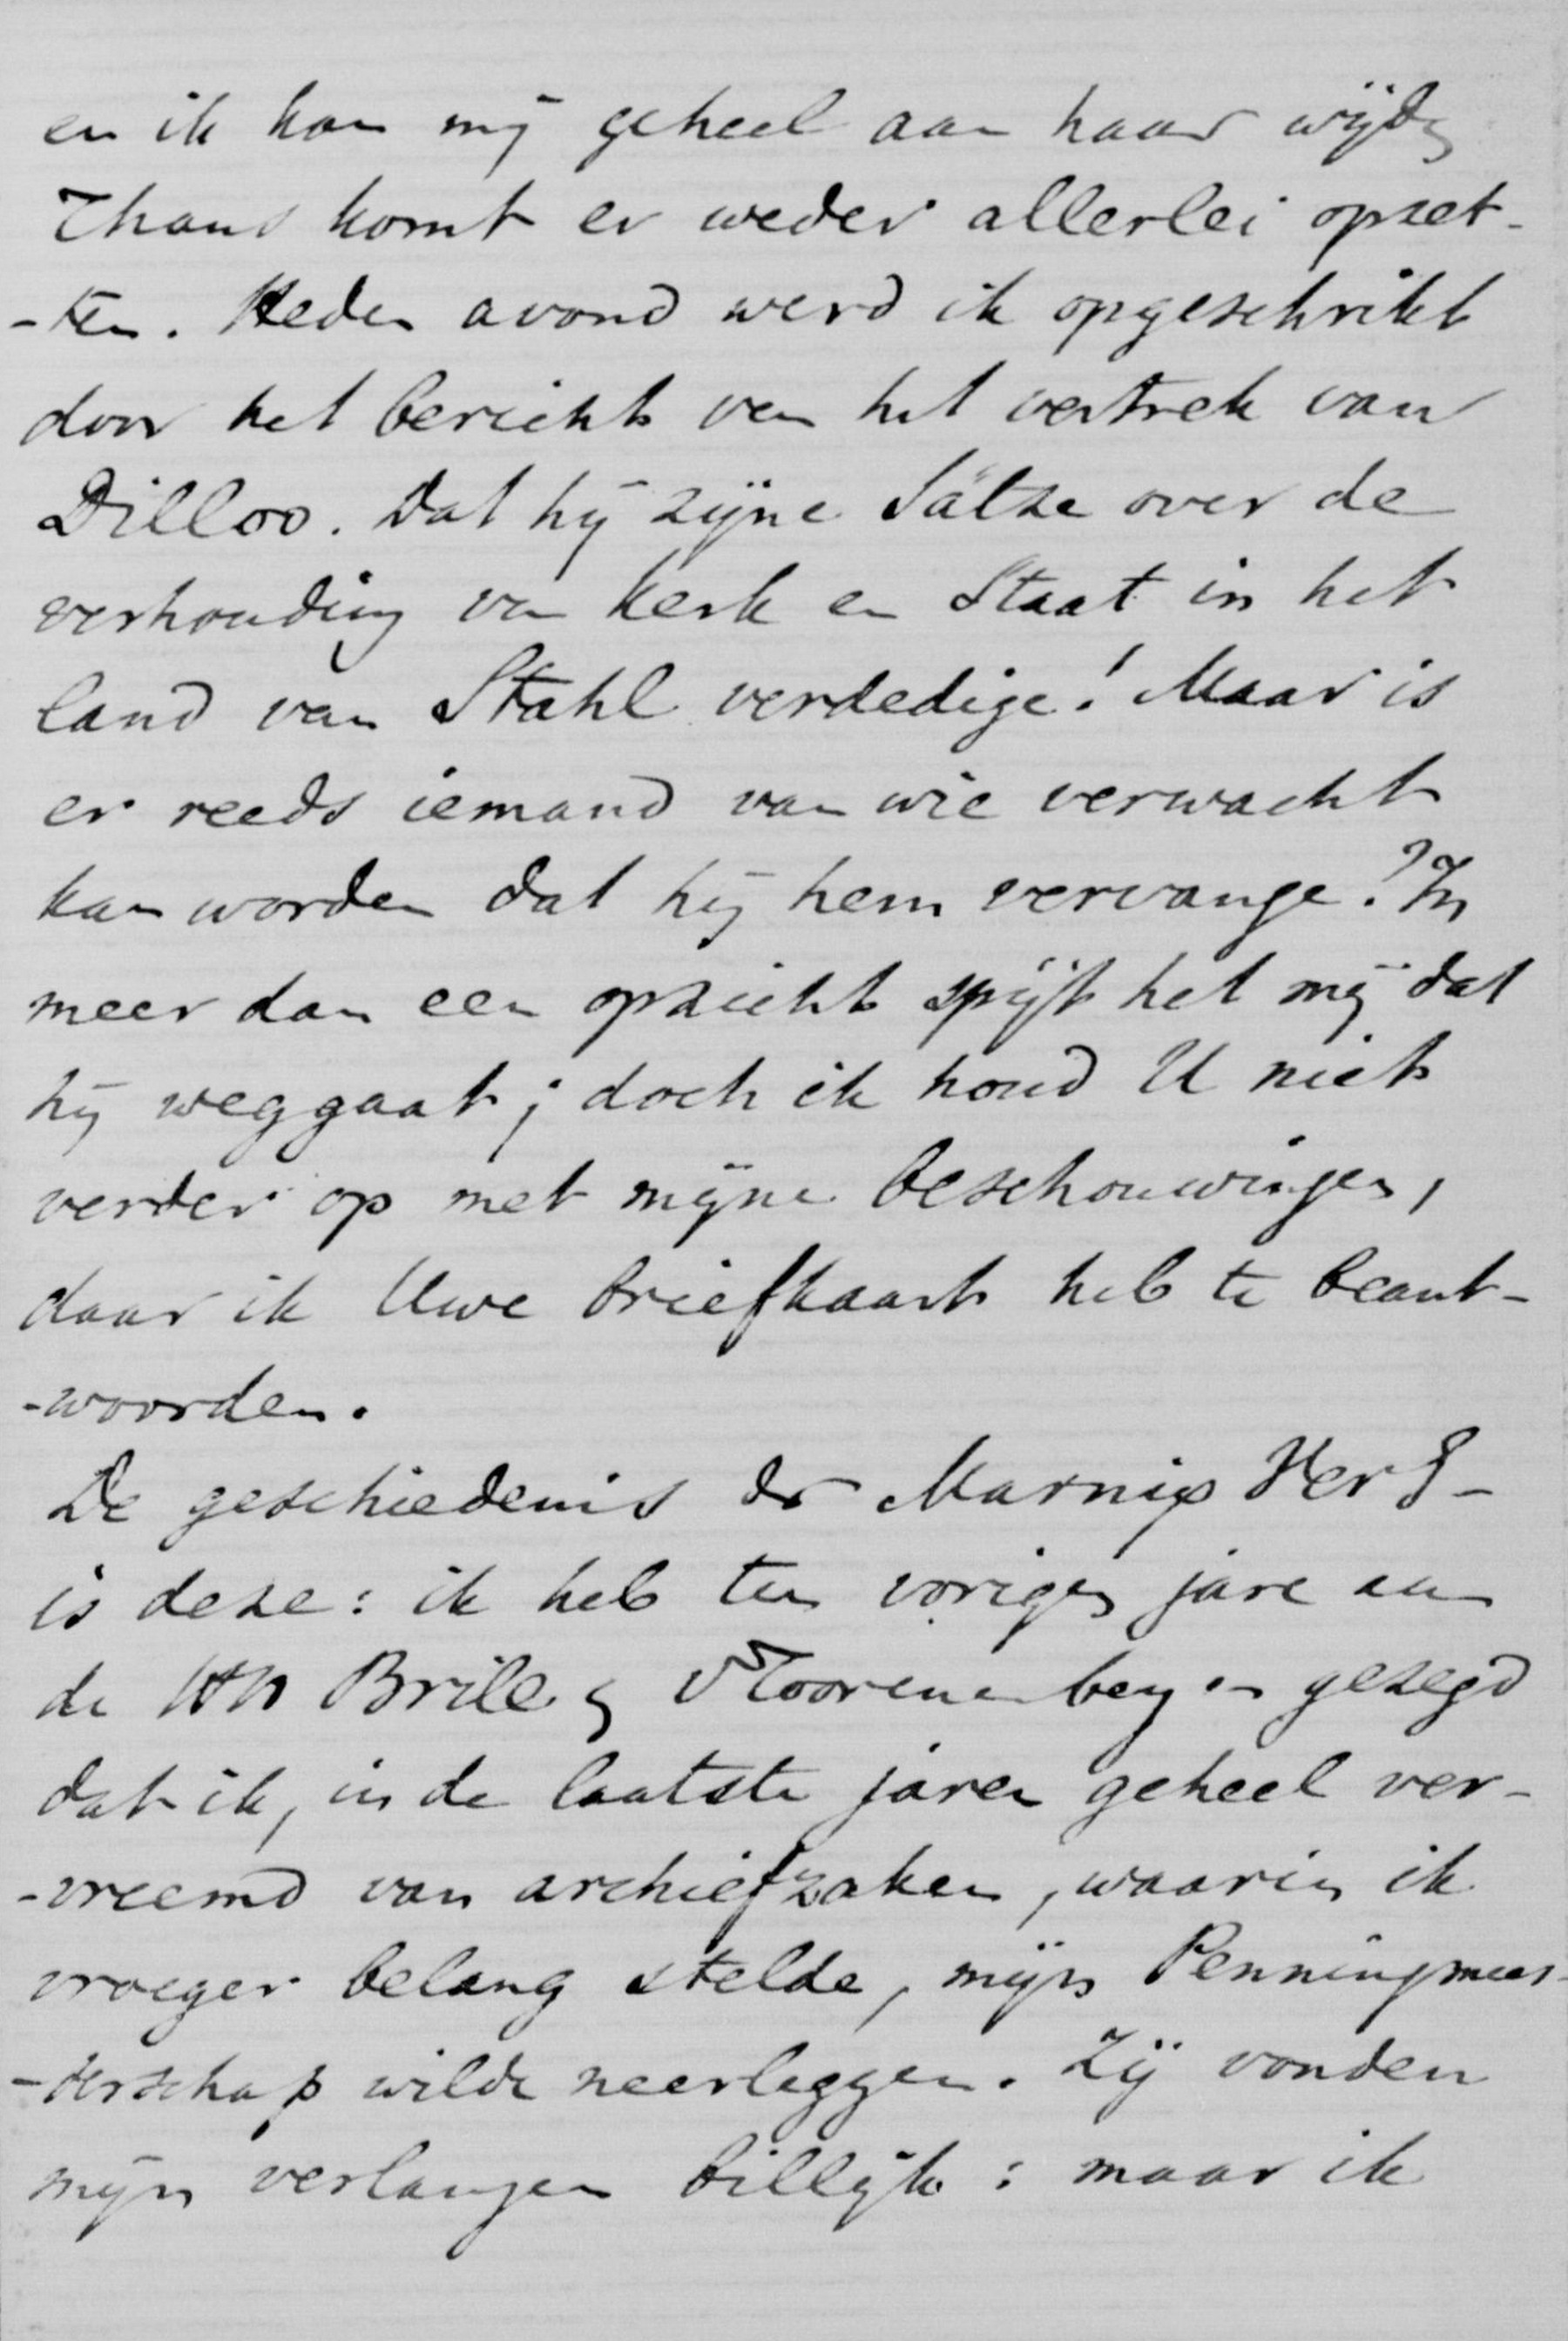 en ik kan mij geheel aan haar wijden
Thans komt er weder allerlei opzet-
-ten. Heden avond werd ik opgeschrikt
door het bericht van het vertrek van
Dilloo. Dat hij zijne Sätze over de
verhouding van Kerk en Staat in het
land van Stahl verdedige! Maar is
er reeds iemand van wie verwacht
kan worden dat hij hem vervange? In
meer dan een opzicht spijt het mij dat
hij weggaat; doch ik houd U niet
verder op met mijne beschouwingen,
daar ik Uwe briefkaart heb te beant-
-woorden.
De geschiedenis der Marnix Ver
is deze: ik heb ten vorigen jare aan
de HH Brill en v Toorenenbergen gezegd
dat ik, in de laatste jaren geheel ver-
-vreemd van archiefzaken, waarin ik
vroeger belang stelde, mijn Penningmees-
-terschap wilde neerleggen. Zij vonden
mijn verlangen billijk: maar ik